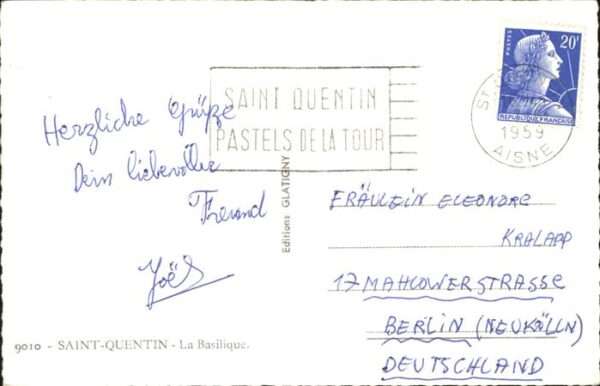 SAINT QUENTIN
PASTELS DE LA TOUR
POSTES
20F
REPUBLIQUE FRANCAISE
ST
1959
AISNE
Herzliche Grüße
Dein liebevoller
Freund
Joël
Editions GLATIGNY
FRÄULEIN ELEONORE
KRALAPP
17 MAHLOWERSTRASSE
BERLIN (NEUKÖLLN)
DEUTSCHLAND
9010 - SAINT-QUENTIN - La Basilique.